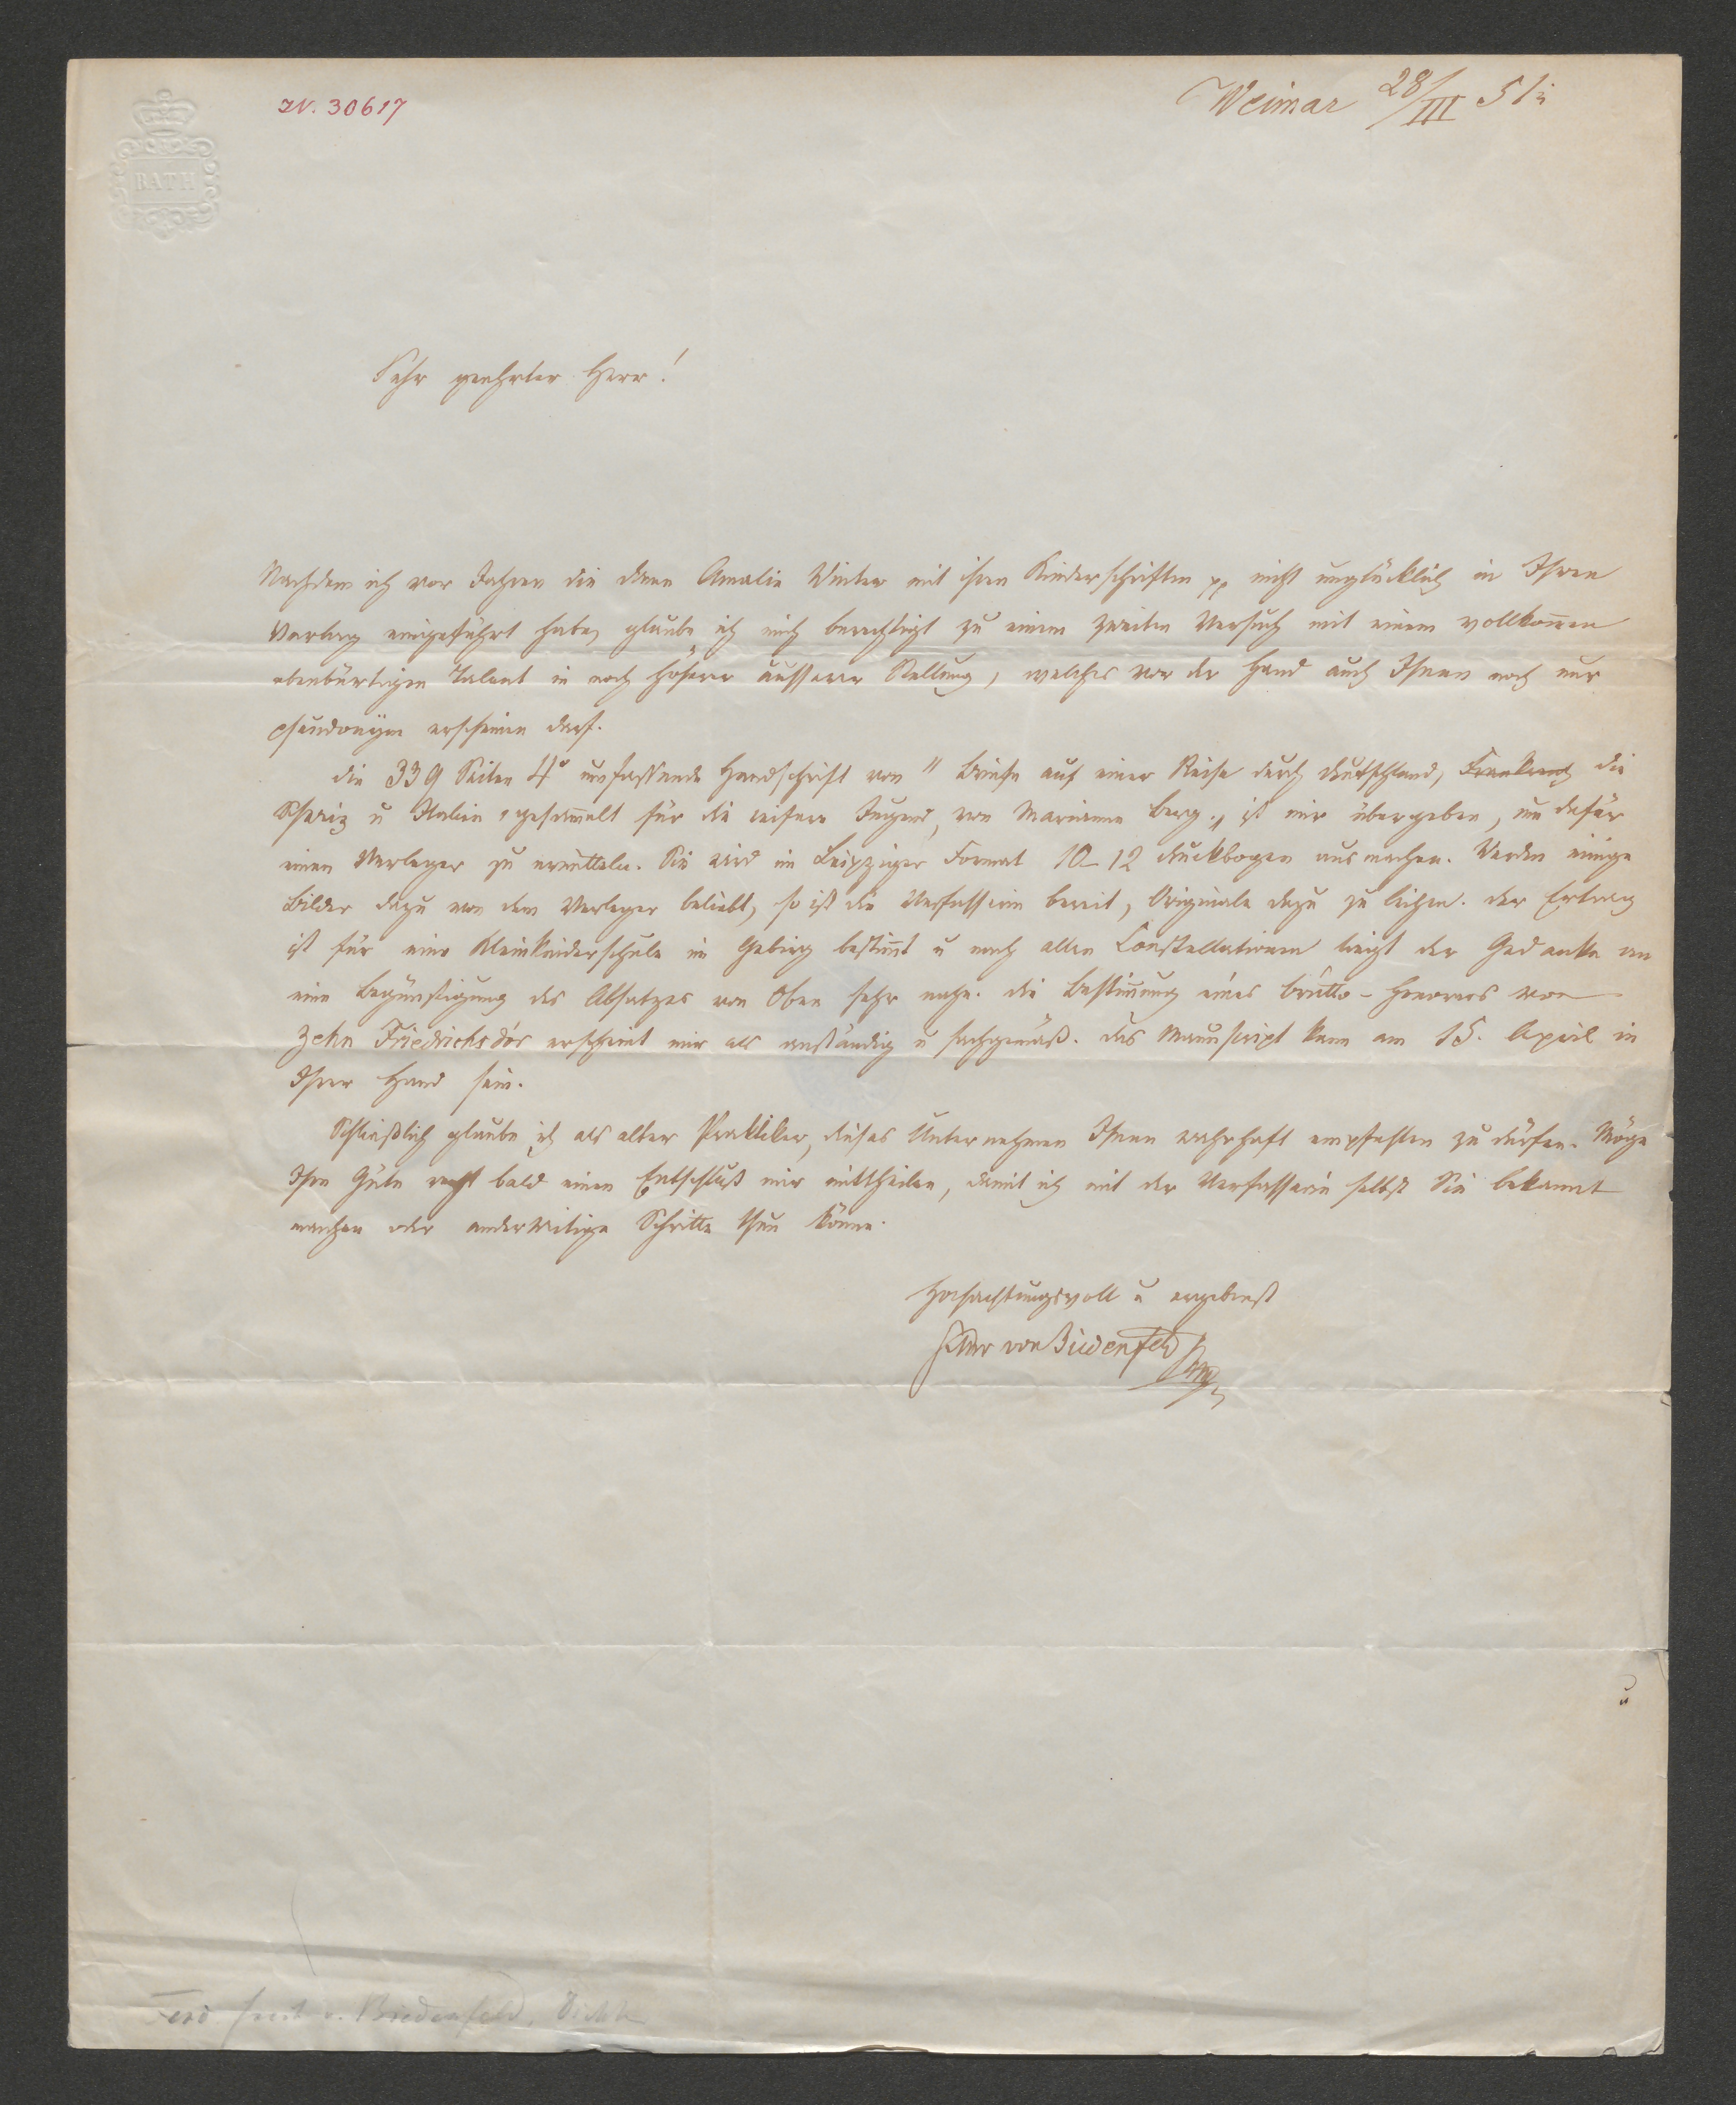 BATH
IN. 30617
Weimar 28/III 51
Sehr geehrter Herr!
Nachdem ich vor Jahren die Dame Amalie Winter mit ihren Kinderschriften pp nicht unglücklich in Ihren
Verlag eingeführt habe, glaube ich mich berechtigt zu einem zweiten Versuch mit einem vollkom̄en
ebenbürtigen Talent in noch höherer äusserer Stellung, welches vor der Hand auch Ihnen noch nur
pseudonÿm erscheinen darf.
Die 339 Seiten 4° umfassende Handschrift von "Briefe auf einer Reise durch Deutschland, Frankreich die
Schweiz u Italien, gesam̄elt für die reifere Jugend, von Marianne Berg." ist mir übergeben, um dafür
einen Verleger zu ermitteln. Sie wird im Leipziger Format 10-12 Druckbogen ausmachen. Werden einige
Bilder dazu von dem Verleger beliebt, so ist die Verfasserin bereit, Originale dazu zu leihen. Der Ertrag
ist für eine Kleinkinderschule im Gebirg bestim̄t u nach allen Constellationen liegt der Gedanke an
eine Begünstigung des Absatzes von Oben sehr nahe. Die Bestim̄ung eines brutto-Honorars von
zehn Friedrichsdór erscheint mir als anständig u sachgemäß. Das Manuscript kann am 15. April in
Ihrer Hand sein.
Schließlich glaube ich als alter Praktiker, dieses Unternehmen Ihnen wahrhaft empfehlen zu dürfen. Möge
Ihre Güte recht bald einen Entschluß mir mittheilen, damit ich mit der Verfasserin selbst Sie bekannt
machen oder anderweitige Schritte thun könne.
Hochachtungsvoll u ergebenst
von Biedenfeld
u
Ferd v. Biedenfeld,